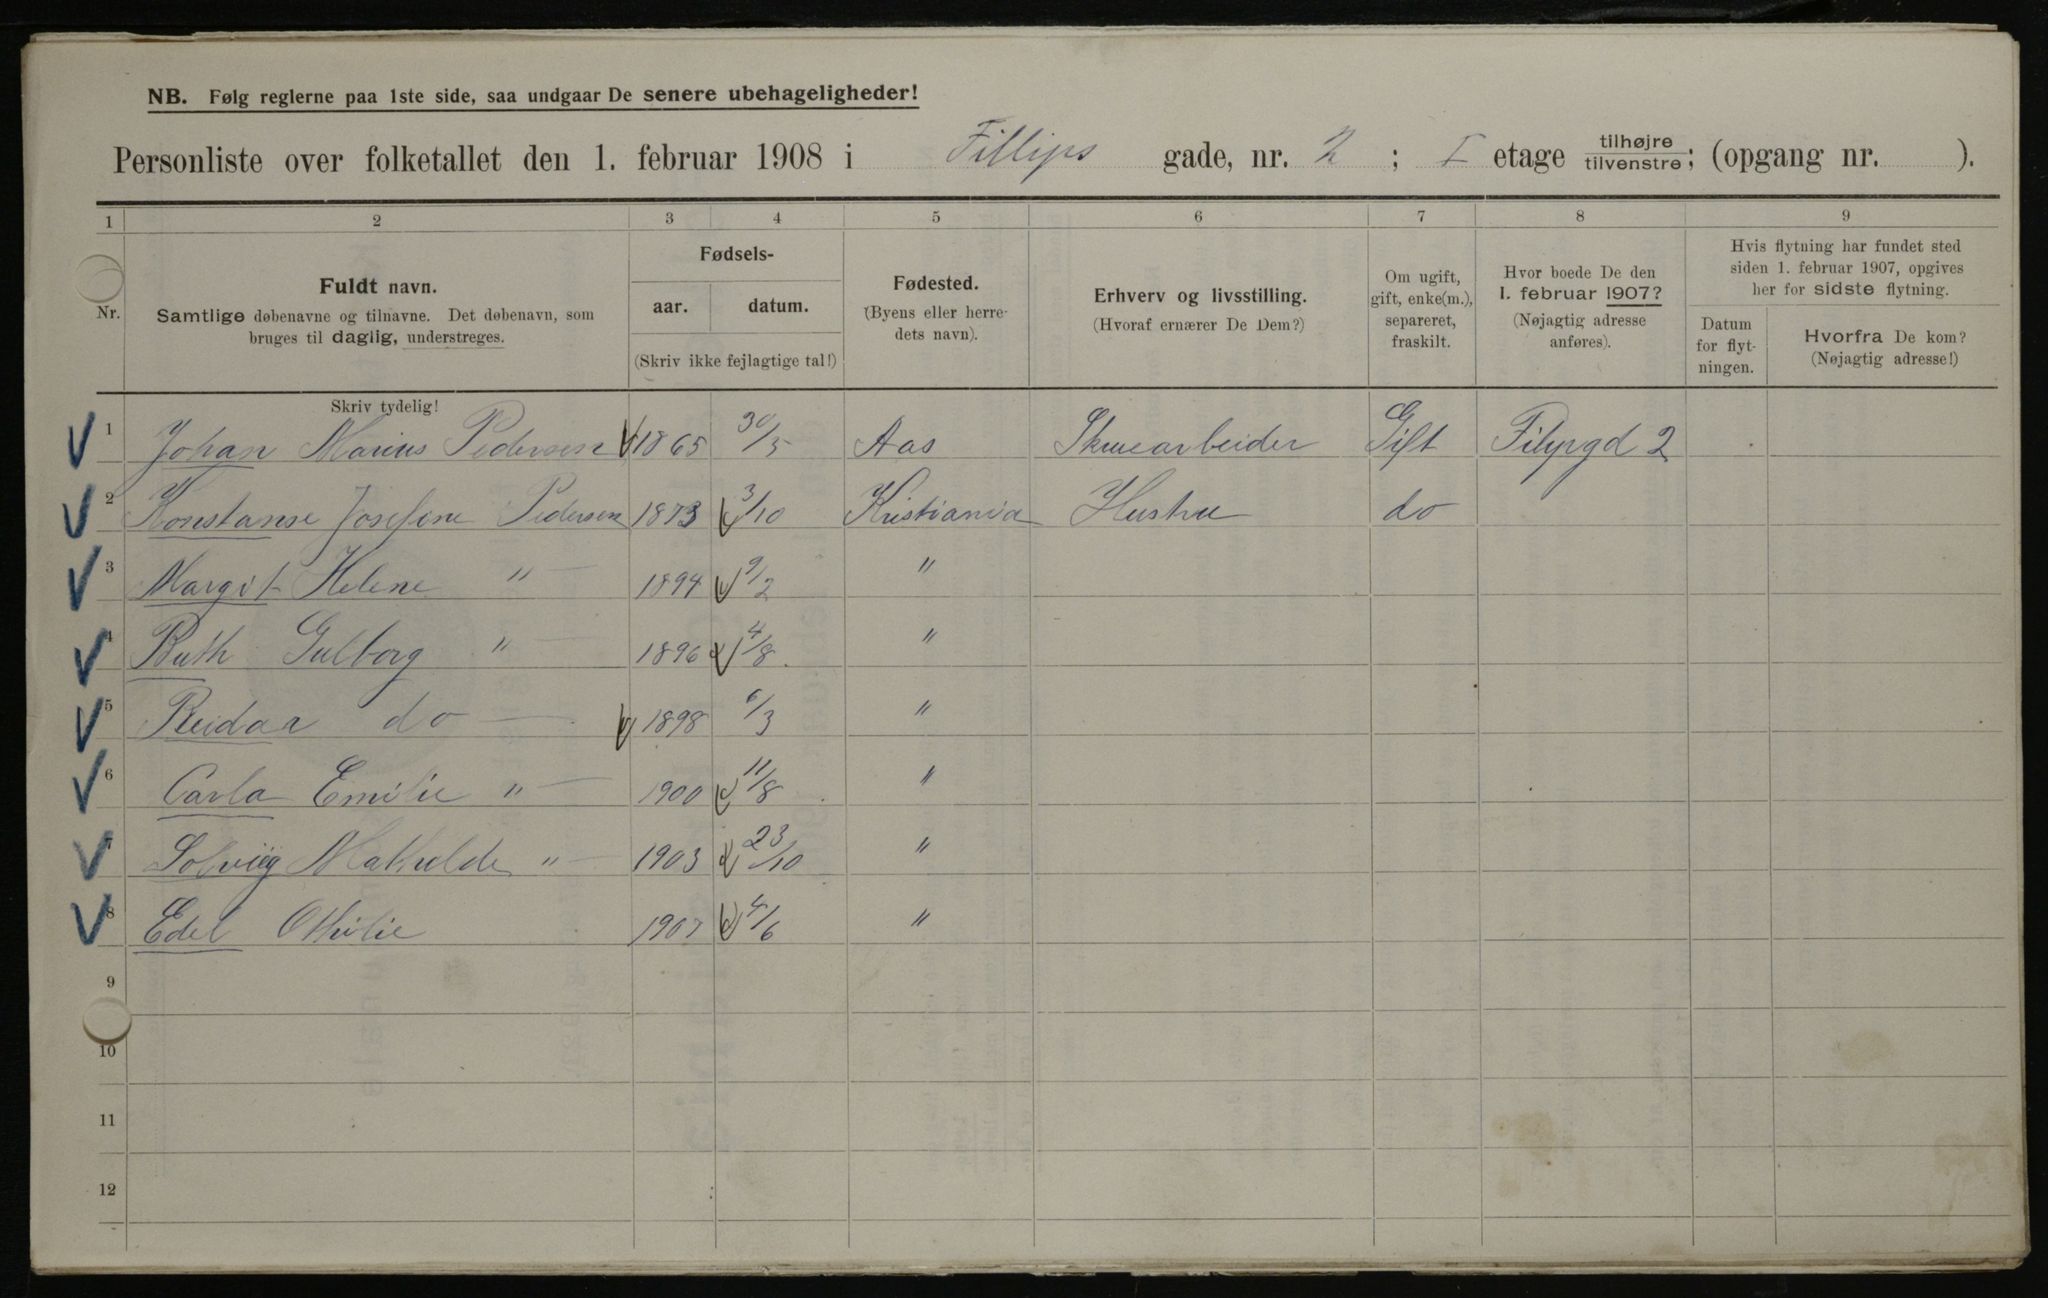 NB. Følg reglerne paa 1ste side, saa undgaar De senere ubehageligheder!
Personliste over folketallet den 1. februar 1908 i Fillips gade, nr. 2 ; I etage tilhøjre/tilvenstre; (opgang nr. ).
1 2 3 4 5 6 7 8 9
Nr.
Fuldt navn.
Samtlige døbenavne og tilnavne. Det døbenavn, som
bruges til daglig, understreges.
Skriv tydelig!
Fødsels-
aar. datum.
(Skriv ikke fejlagtige tal!)
Fødested.
(Byens eller herre-
dets navn).
Erhverv og livsstilling.
(Hvoraf ernærer De Dem?)
Om ugift,
gift, enke(m.),
separeret,
fraskilt.
Hvor boede De den
1. februar 1907?
(Nøjagtig adresse
anføres).
Hvis flytning har fundet sted
siden 1. februar 1907, opgives
her for sidste flytning.
Datum
for flyt-
ningen.
Hvorfra De kom?
(Nøjagtig adresse!)
1 Johan Marius Pedersen 1865 30/5 Aas Skruearbeider Gift Filipgd 2
2 Konstanse Josefine Pedersen 1873 3/10 Kristiania Hustru do
3 Margit Helene " 1894 9/2 "
4 Ruth Gulborg " 1896 4/8 "
5 Reidar do 1898 6/3 "
6 Carla Emilie " 1900 11/8 "
7 Solveig Mathilde " 1903 23/10 "
8 Edel Othilie 1907 4/6 "
9
10
11
12